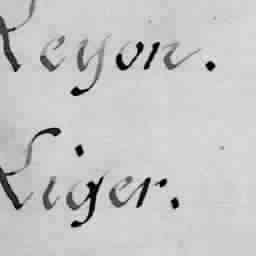 Reyon.
Riger.